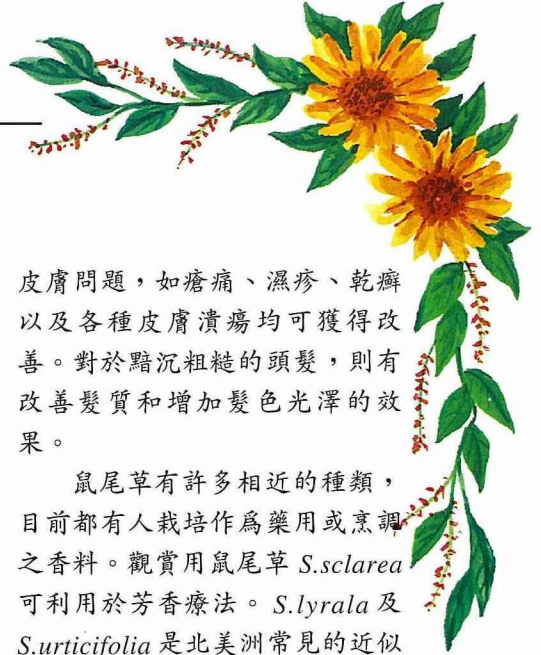 皮膚問題，如瘡痛、濕疹、乾癬
以及各種皮膚潰瘍均可獲得改
善。對於黯沉粗糙的頭髮，則有
改善髮質和增加髮色光澤的效
果。
鼠尾草有許多相近的種類，
目前都有人栽培作爲藥用或烹調
之香料。觀賞用鼠尾草 S.sclarea
可利用於芳香療法。 S.lyrala 及
S.urticifolia 是北美洲常見的近似